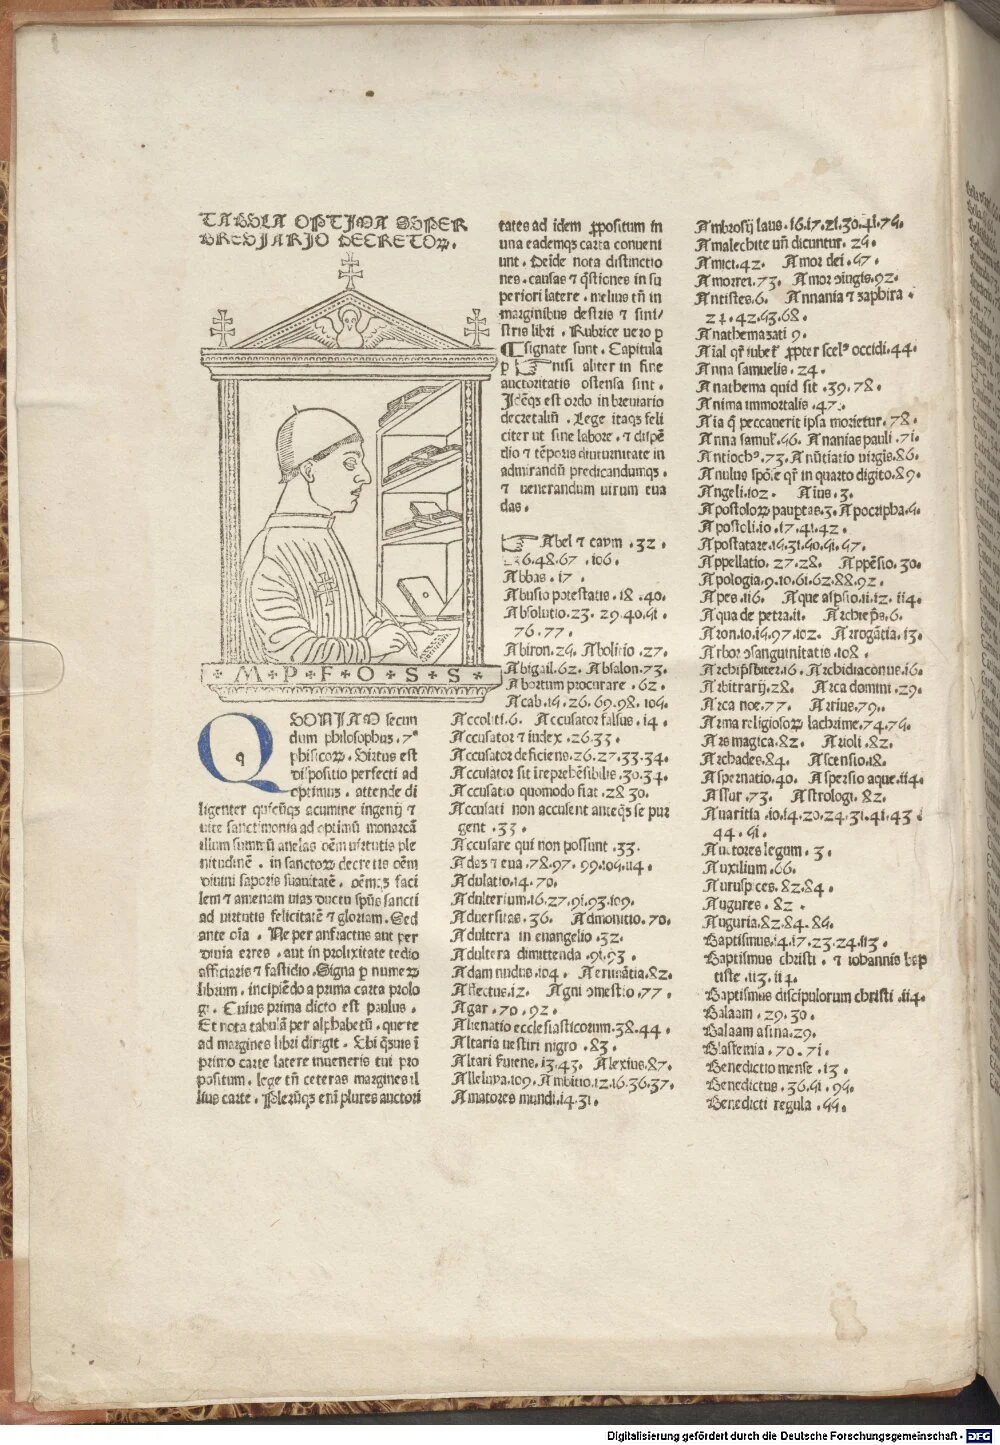 TABVLA OPTIMA SVPER
BREVIARIO DECRETOꝜ.
· M · P · F · O · S · S ·
QVONIAM secun
dum philosophus .7ͫ
phisicoꝝ. Virtus est
dispositio perfecti ad
optimus . attende di
ligenter acumine ingenij ⁊
uite sanctimonia ad optimū monarcā
illum summū anelas oēm uirtutis ple
nitudinē . in sanctoꝝ decretis oēm
diuini saporis suauitatē . oēmqꝫ faci
lem ⁊ amenam uias ductu spūs sancti
ad uirtutis felicitatē ⁊ gloriam . Sed
ante oīa . Ne per anfractus aut per
diuia erres . aut in prolixitate tedio
afficiaris ⁊ fastidio . Signa p numeꝝ
librum . incipiēdo a prima carta prolo
gi . Cuius prima dicto est paulus .
Et nota tabulā per alphabetū . que te
ad margines libri dirigit . Vbi ī
primo carte latere inueneris tui pro
positum . lege tn̄ ceteras margines il
lius carte . Plerūqꝫ enī plures auctori
tates ad idem ꝓpositum in
una eademqꝫ carta conueni
unt . Deīde nota distinctio
nes . causas ⁊ q̄stiones in su
periori latere . melius tn̄ in
marginibus destris ⁊ sini/
stris libri . Rubrice uero p
¶ signate sunt . Capitula
p ☞ nisi aliter in fine
auctoritatis ostensa sint .
Idēqꝫ est ordo in breuiario
decretaliū . Lege itaqꝫ feli
citer ut sine labore . ⁊ dispē
dio ⁊ tēporis diuturnitate in
admirandū predicandumqꝫ .
⁊ uenerandum uirum eua
das .
☞ Abel ⁊ caym . 32 .
46.48.67 . 106 .
Abbas . 17 .
Abusio potestatis . 18 . 40.
Absolutio . 23. 29.40.51 .
76 . 77 .
Abiron . 25 . Abolitio . 27.
Abigail . 62 . Absalon . 73 .
Abortum procurare . 62 .
Acab . 15 . 26. 69. 98 . 105.
Accoliti . 6. Accusator falsus . 14 .
Accusator ⁊ index . 26.33 .
Accusator deficiens . 26. 27.33.34.
Accusator sit irreprehēsibilis . 30.34.
Accusatio quomodo fiat . 28 30.
Accusati non accusent anteqꝫ se pur
gent . 33 .
Accusare qui non possunt . 33.
Adaꝫ ⁊ eua . 78.97. 99.105.114 .
Adulatio . 14 . 70.
Adulterium . 16.27.91.93.109.
Aduersitas . 36. Admonitio . 70.
Adultera in euangelio . 32.
Adultera dimittenda . 91.93 .
Adam nudus . 104 . Aerumātia . 82 .
Affectus . 12 . Agni ↄmestio . 77 .
Agar . 70 . 92 .
Alienatio ecclesiasticorum . 38 . 44 .
Altaria uestiri nigro . 83 .
Altari seruiens . 13.43. Alexius . 87.
Alleluya . 109 . Ambitio . 12 . 16.36.37.
Amatores mundi . 14 . 31 .
Ambrosij laus . 16.17.21.30.41.75.
Amalechite un̄ dicuntur . 25 .
Amici . 42 . Amor dei . 57 .
Amorrei . 73 . Amor ↄiugis . 92 .
Antistes . 6 . Annania ⁊ zaphira .
24 . 42.53.68 .
Anathemazati 9 .
Aīal qr̄ iubet̄ ꝓpter scelꝰ occidi . 44 .
Anna samuelis . 24 .
Anathema quid sit . 39 . 78 .
Anima immortalis . 47 .
Aīa q̄ peccauerit ipsa morietur . 78 .
Anna samuel . 56. Ananias pauli . 71 .
Antiochꝰ . 73 . Anūtiatio uirgīs . 86 .
Anulus spōse qr̄ in quarto digito . 89 .
Angeli . 102 . Aius . 3 .
Apostoloꝝ paupertas . 3 . Apocripha . 5 .
Apostoli . 10 . 17 . 41 . 42 .
Apostatare . 15.31.50.51.57.
Appellatio . 27 . 28 . Appēsio . 30.
Apologia . 9.10.61.62.88.92 .
Apes . 116 . Aque aspsio . 11.12 . 114 .
Aqua de petra . 11 . Archieps . 6.
Aron . 10.15.97.102 . Arrogātia . 13 .
Arbor ↄsanguinitatis . 108 .
Archipsbiter . 16 . Archidiaconus . 16 .
Arbitrarij . 28 . Arca domini . 29 .
Arca noe . 77 . Arrius . 79 .
Arma religiosoꝝ lachrime . 74 . 75 .
Ars magica . 82 . Arioli . 82 .
Archades . 84 . Ascensio . 18 .
Aspernatio . 40 . Aspersio aque . 114 .
Assur . 73 . Astrologi . 82 .
Auaritia . 10 . 14 . 20 . 24 . 31 . 41 . 43
44 . 51 .
Auctores legum . 3 .
Auxilium . 66 .
Auruspices . 82 . 84 .
Augures . 82 .
Auguria . 82 . 84 . 85 .
Baptismus . 14.17.23.24.113 .
Baptismus christi . ⁊ iohannis bap
tiste . 113 . 114 .
Baptismus discipulorum christi . 114 .
Balaam . 29 . 30 .
Balaam asina . 29 .
Blasfemia . 70 . 71 .
Benedictio mense . 13 .
Benedictus . 36.51 . 95 .
Benedicti regula . 55 .
Digitalisierung gefördert durch die Deutsche Forschungsgemeinschaft - DFG